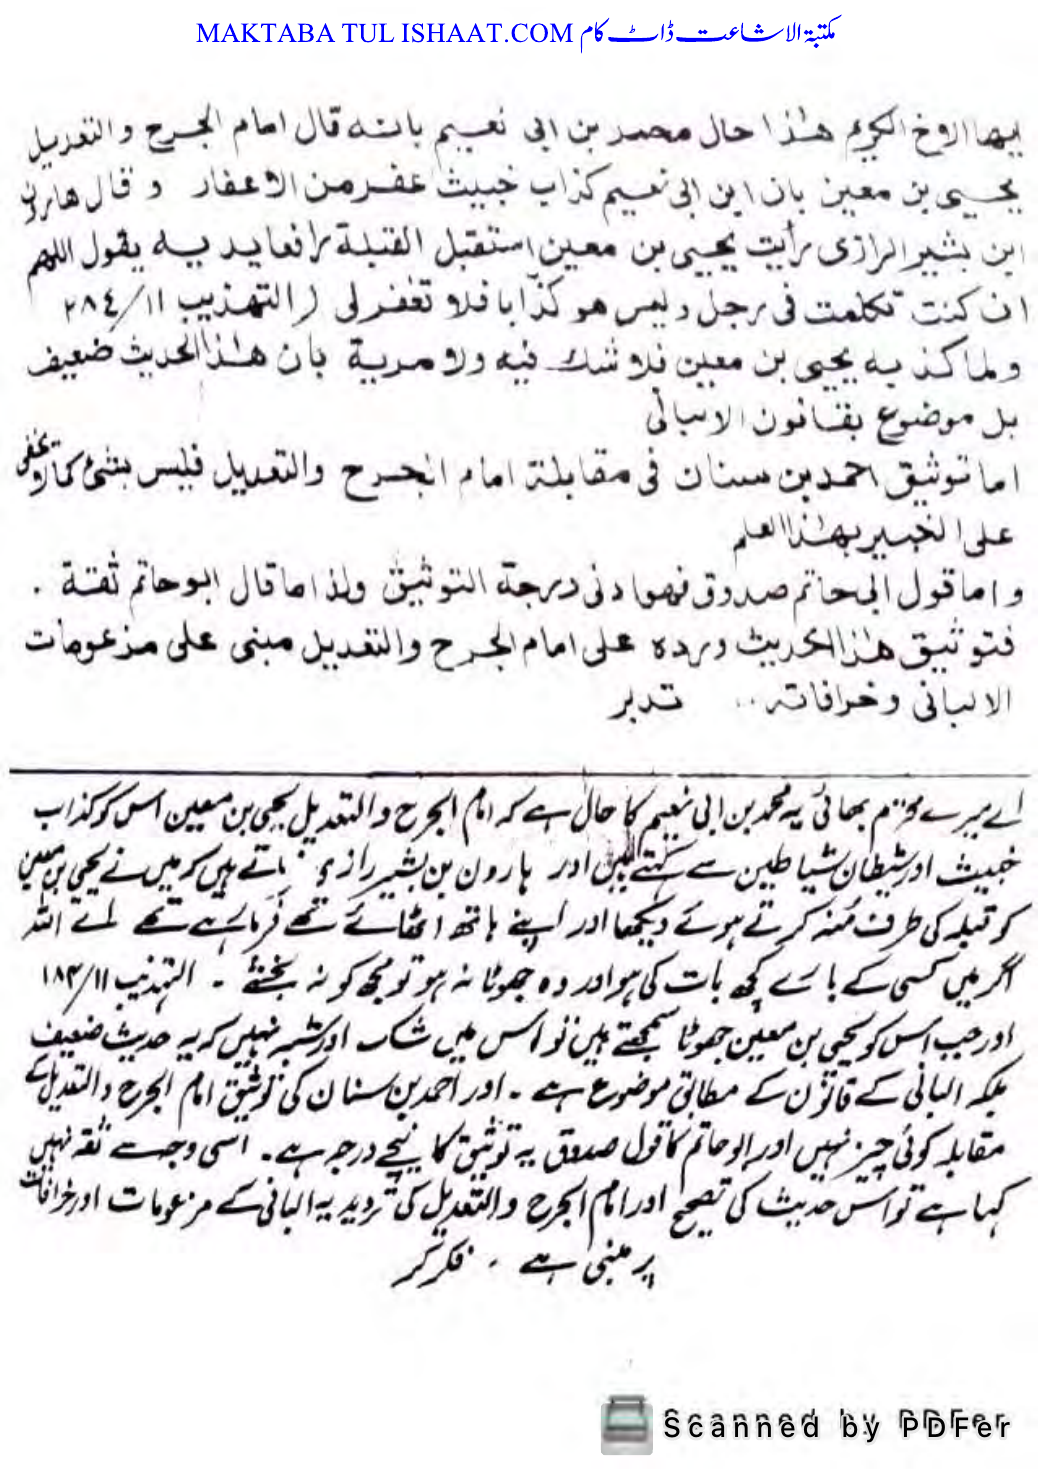 MAKTABA TUL ISHAAT.COM مکتبۃ الاشاعت ڈاٹ کام
ایها الاخ الکریم هٰذا حال محمد بن ابی نعیم بانه قال امام الجرح والتعدیل
یحیی بن معین بان ابن ابی نعیم کذاب خبیث عفر من الاعفار و قال هارون
ابن بشیر الرازی رأیت یحیی بن معین استقبل القبلة رافعا یدیه یقول اللهم
ان کنت تکلمت فی رجل ولیس هو کذّابا فلا تغفر لی (التهذیب ۱۱/۲۸٤
ولما کذبه یحیی بن معین فلا شك فیه ولا مریة بان هٰذا الحدیث ضعیف
بل موضوع بقانون الالبانی
اما توثیق احمد بن سنان فی مقابلة امام الجرح والتعدیل فلیس بشیٔ کما لا یخفی
علی الخبیر بهٰذا العلم
واما قول ابی حاتم صدوق فهو ادنی درجة التوثیق ولذا ما قال ابو حاتم ثقة .
فتوثیق هٰذا الحدیث ورده علی امام الجرح والتعدیل مبنی علی مزعومات
الالبانی وخرافاته .. تدبر
اے میرے محترم بھائی یہ محمد بن ابی نعیم کا حال ہے کہ امام الجرح والتعدیل یحیی بن معین اس کو کذاب
خبیث اور شیطان شیاطین سے کہتے ہیں اور ہارون بن بشیر رازی فرماتے ہیں کہ میں نے یحیی بن معین
کو قبلہ کی طرف منہ کرتے ہوئے دیکھا اور اپنے ہاتھ اٹھائے تھے فرما رہے تھے اے اللہ
اگر میں کسی کے بارے کچھ بات کی ہو اور وہ جھوٹا نہ ہو تو مجھ کو نہ بخشئے ۔ التہذیب ۱۱/۱۸۴
اور جب اس کو یحیی بن معین جھوٹا سمجھتے ہیں تو اس میں شک اور شبہ نہیں کہ یہ حدیث ضعیف
بلکہ البانی کے قانون کے مطابق موضوع ہے ۔ اور احمد بن سنان کی توثیق امام الجرح والتعدیل کے
مقابلہ کوئی چیز نہیں اور ابو حاتم کا قول صدوق یہ توثیق کا نیچے درجہ ہے ۔ اسی وجہ سے ثقہ نہیں
کہا ہے تو اس حدیث کی تصحیح اور امام الجرح والتعدیل کی تردید یہ البانی کے مزعومات اور خرافات
پر مبنی ہے ۔ فکر کر
Scanned by PDFer